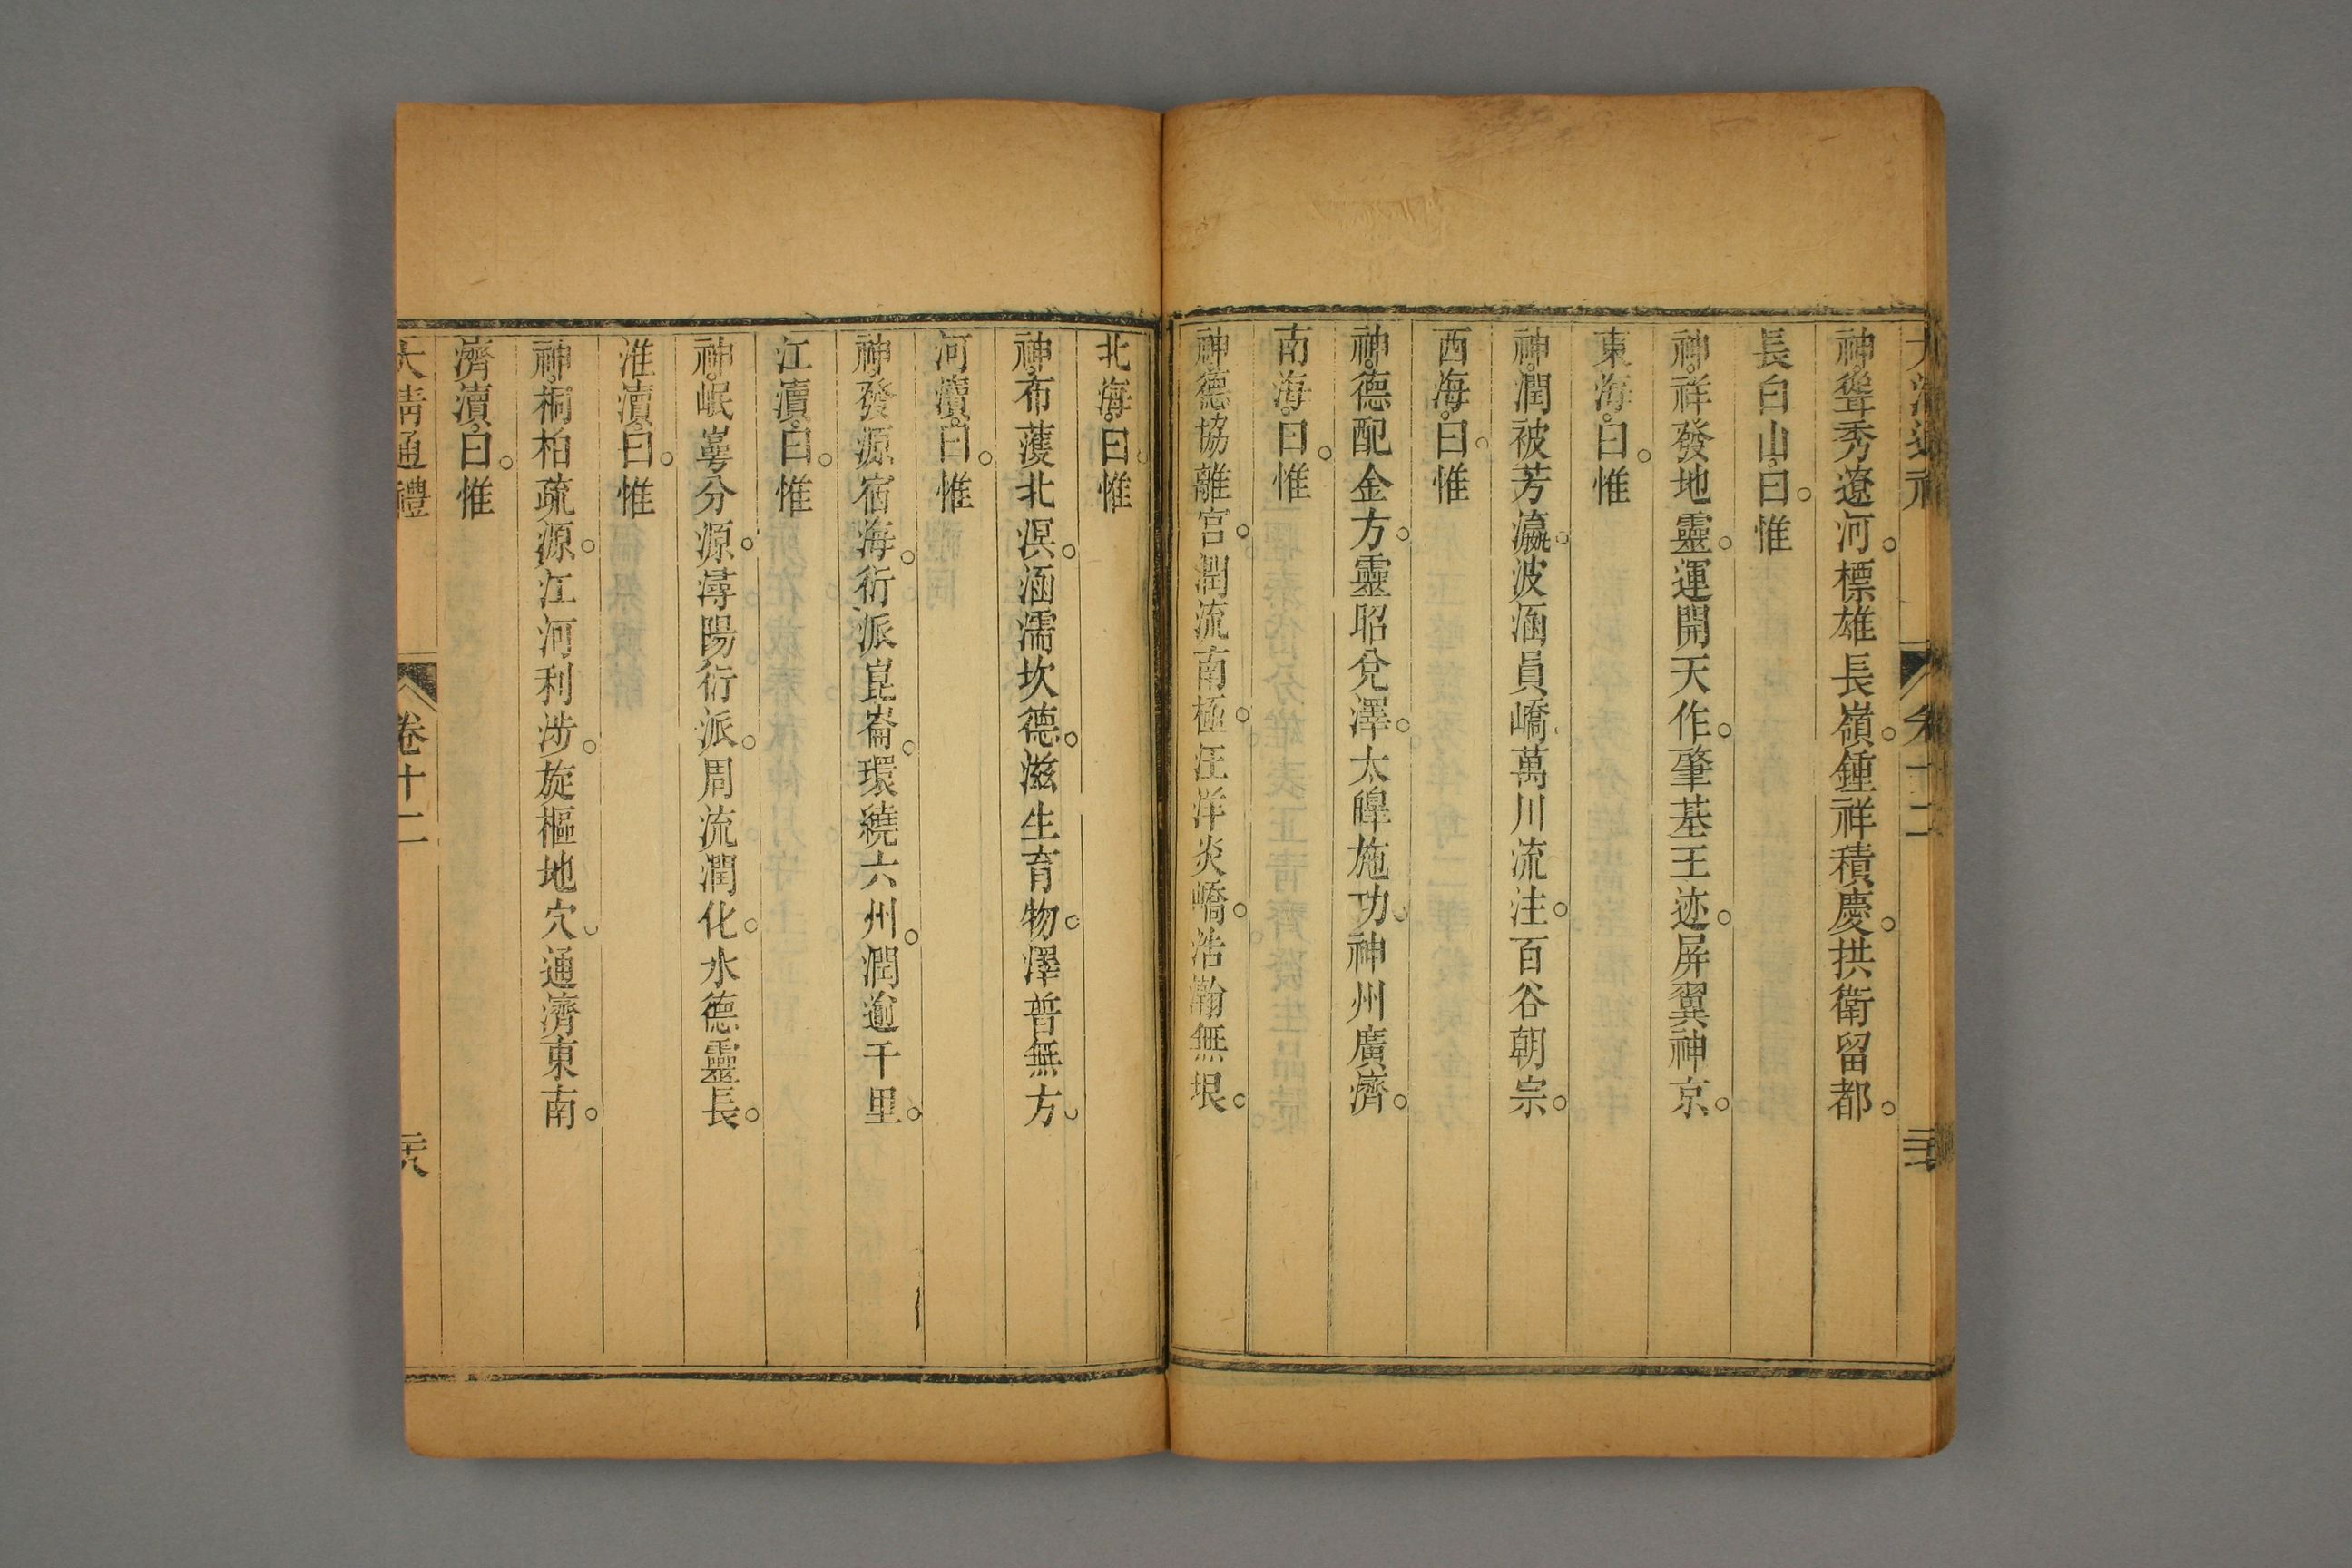 神聳秀遼河。標雄長嶺。鍾祥積慶。拱衛留都。
長白山。曰。惟
神祥發地靈。運開天作。肇基王迹。屏翼神京。
東海。曰。惟
神潤被芳瀛。波涵員嶠。萬川流注。百谷朝宗。
西海。曰。惟
神德配金方。靈昭兌澤。太皡施功。神州廣濟。
南海。曰。惟
神德協離宫。潤流南極。汪洋炎嶠。浩瀚無垠。
北海。曰。惟
神布蒦北溟。涵濡坎德。滋生育物。澤普無方。
河瀆。曰。惟
神發源宿海。衍派崑崙。環繞六州。潤逾千里。
江瀆。曰。惟
神岷嶺分源。潯陽衍派。周流潤化。水德靈長。
淮瀆。曰。惟
神桐柏疏源。江河利涉。旋樞地穴。通濟東南。
濟瀆。曰。惟
大清通禮 卷十二